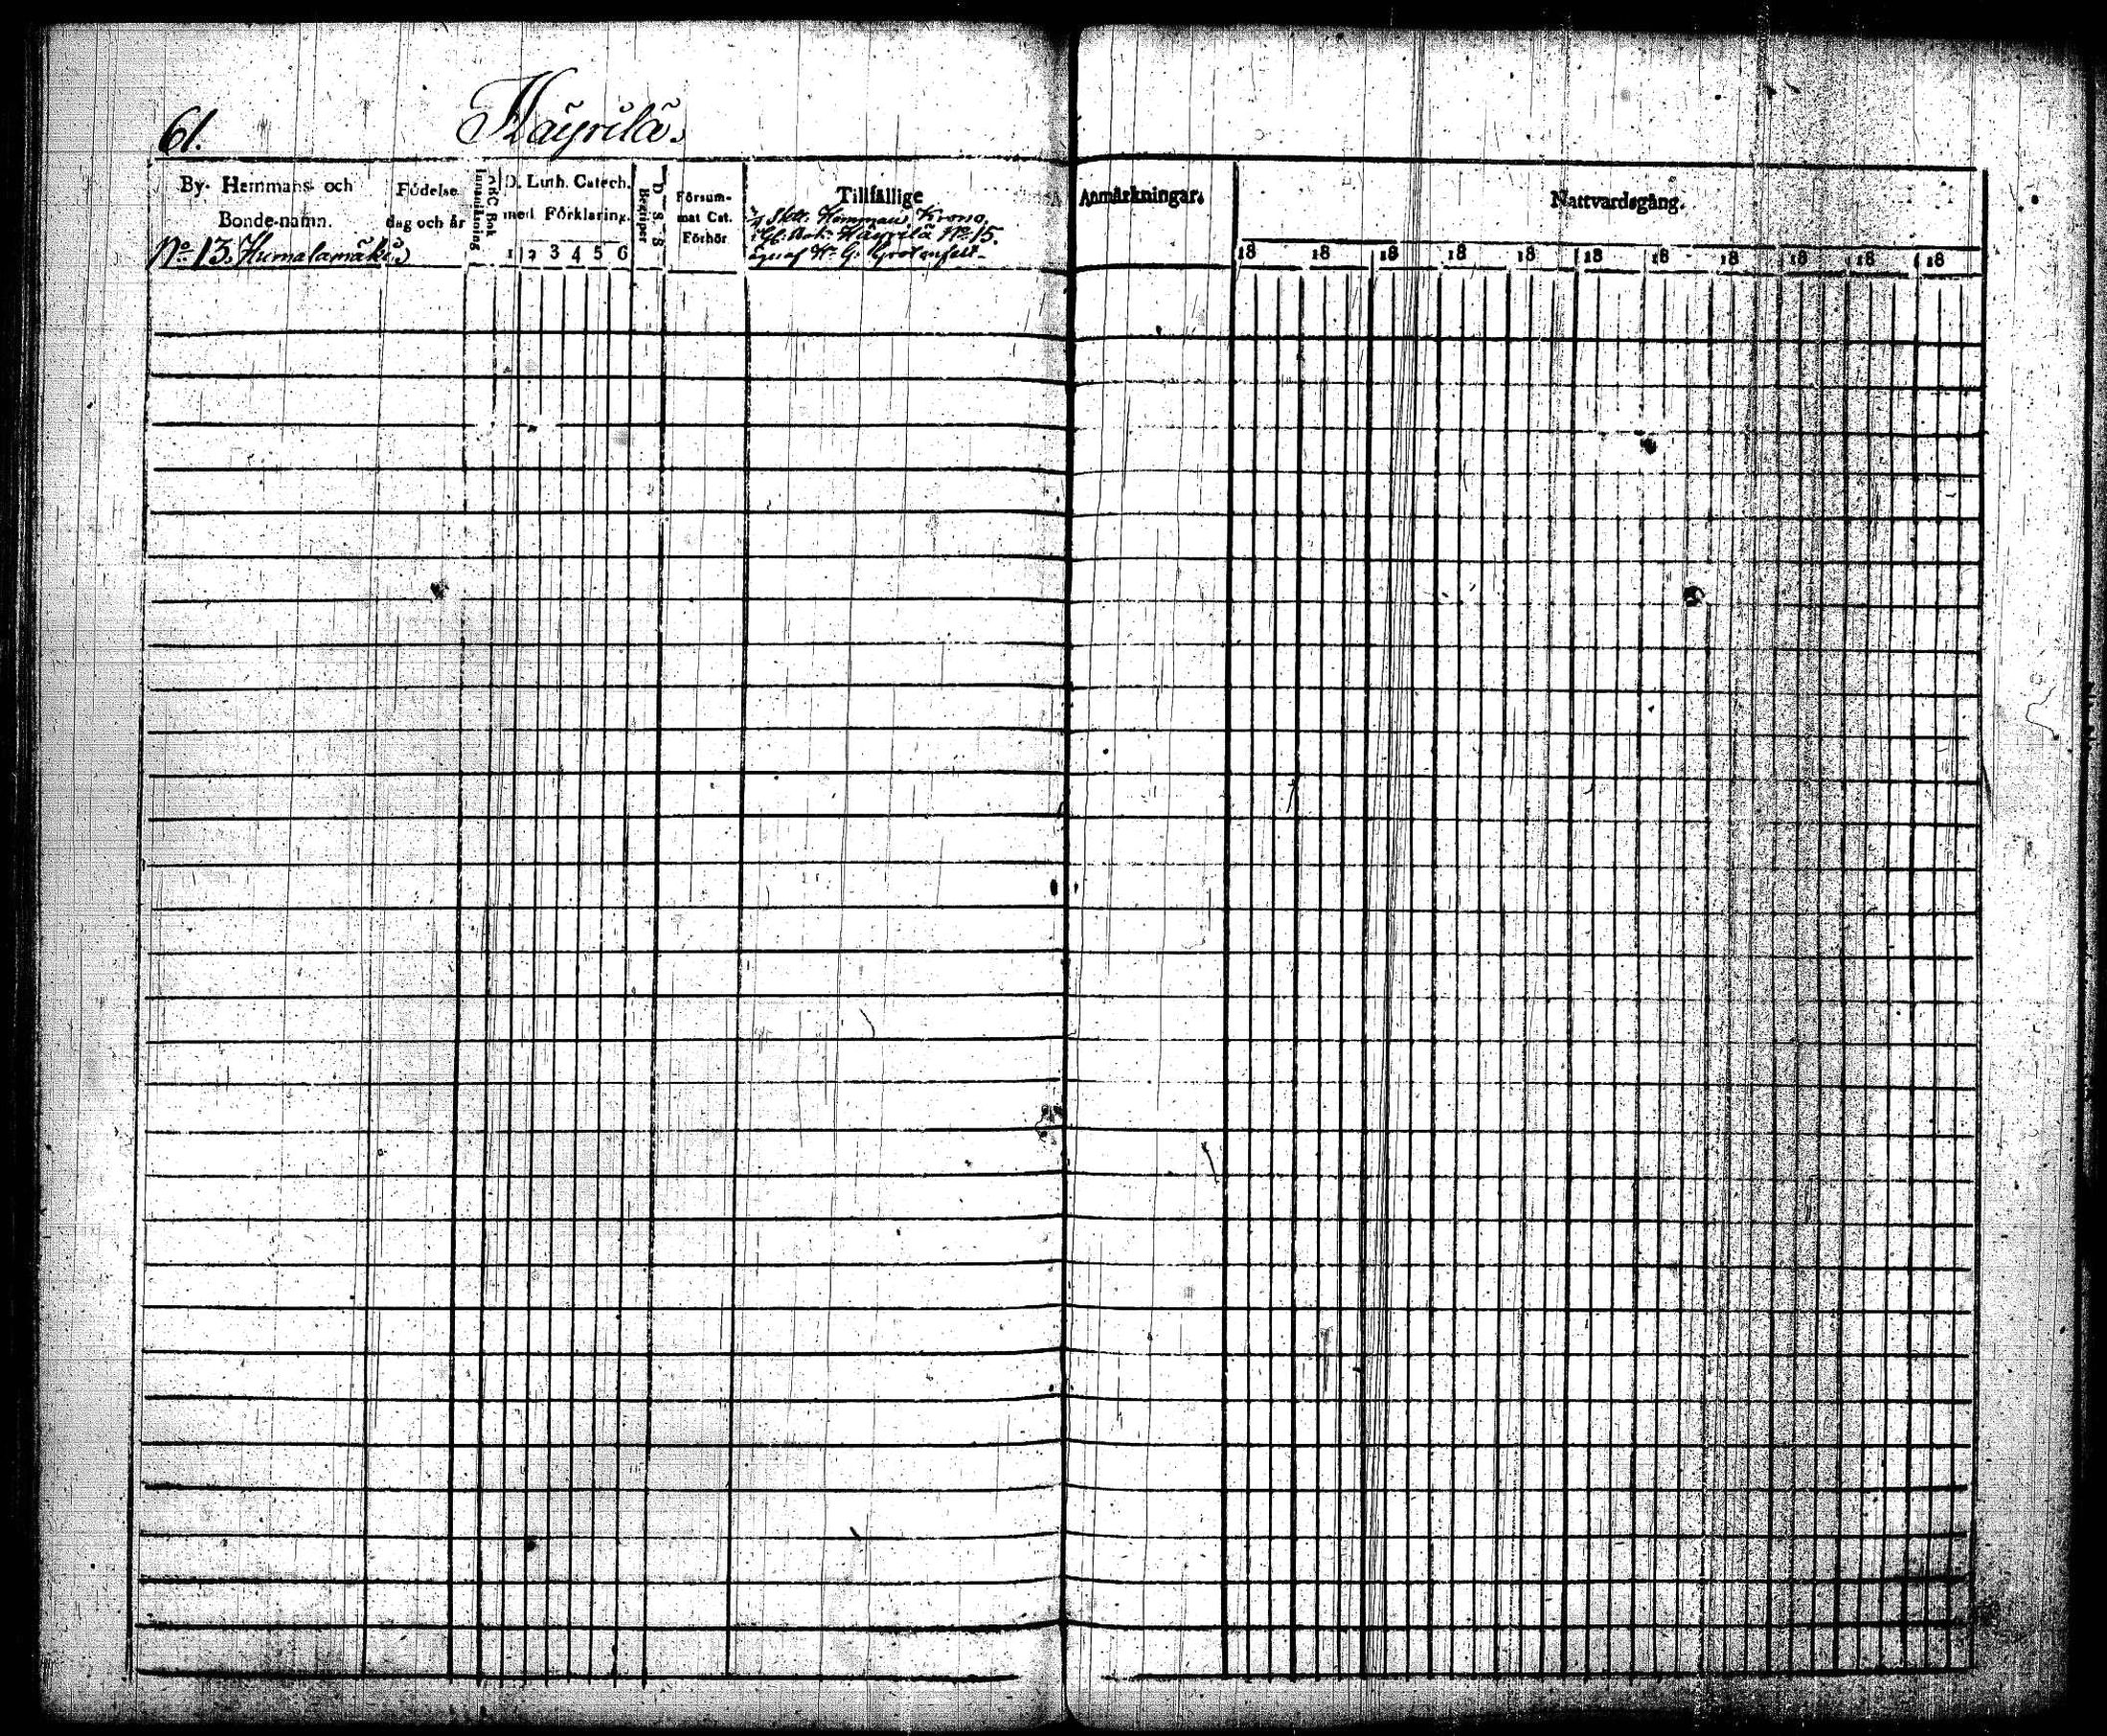 61.
Häyrilä.
By- Hemmans- och
Bonde-namn.
No 13. Humalamäki
Födelse
dag och år
ABC Bok
Innanläsning
D. Luth. Catech.
med Förklaring.
1 2 3 4 5 6
D. S. S.
Begriper
Försum-
mat Cat.
Förhör
Tillfällige
Sktt. Hemman, Krono,
Häyrilä No 15.
äges af Hr G. Grotenfelt.
Anmärkningar.
Nattvardsgång.
18 18 18 18 18 18 18 18 18 18 18